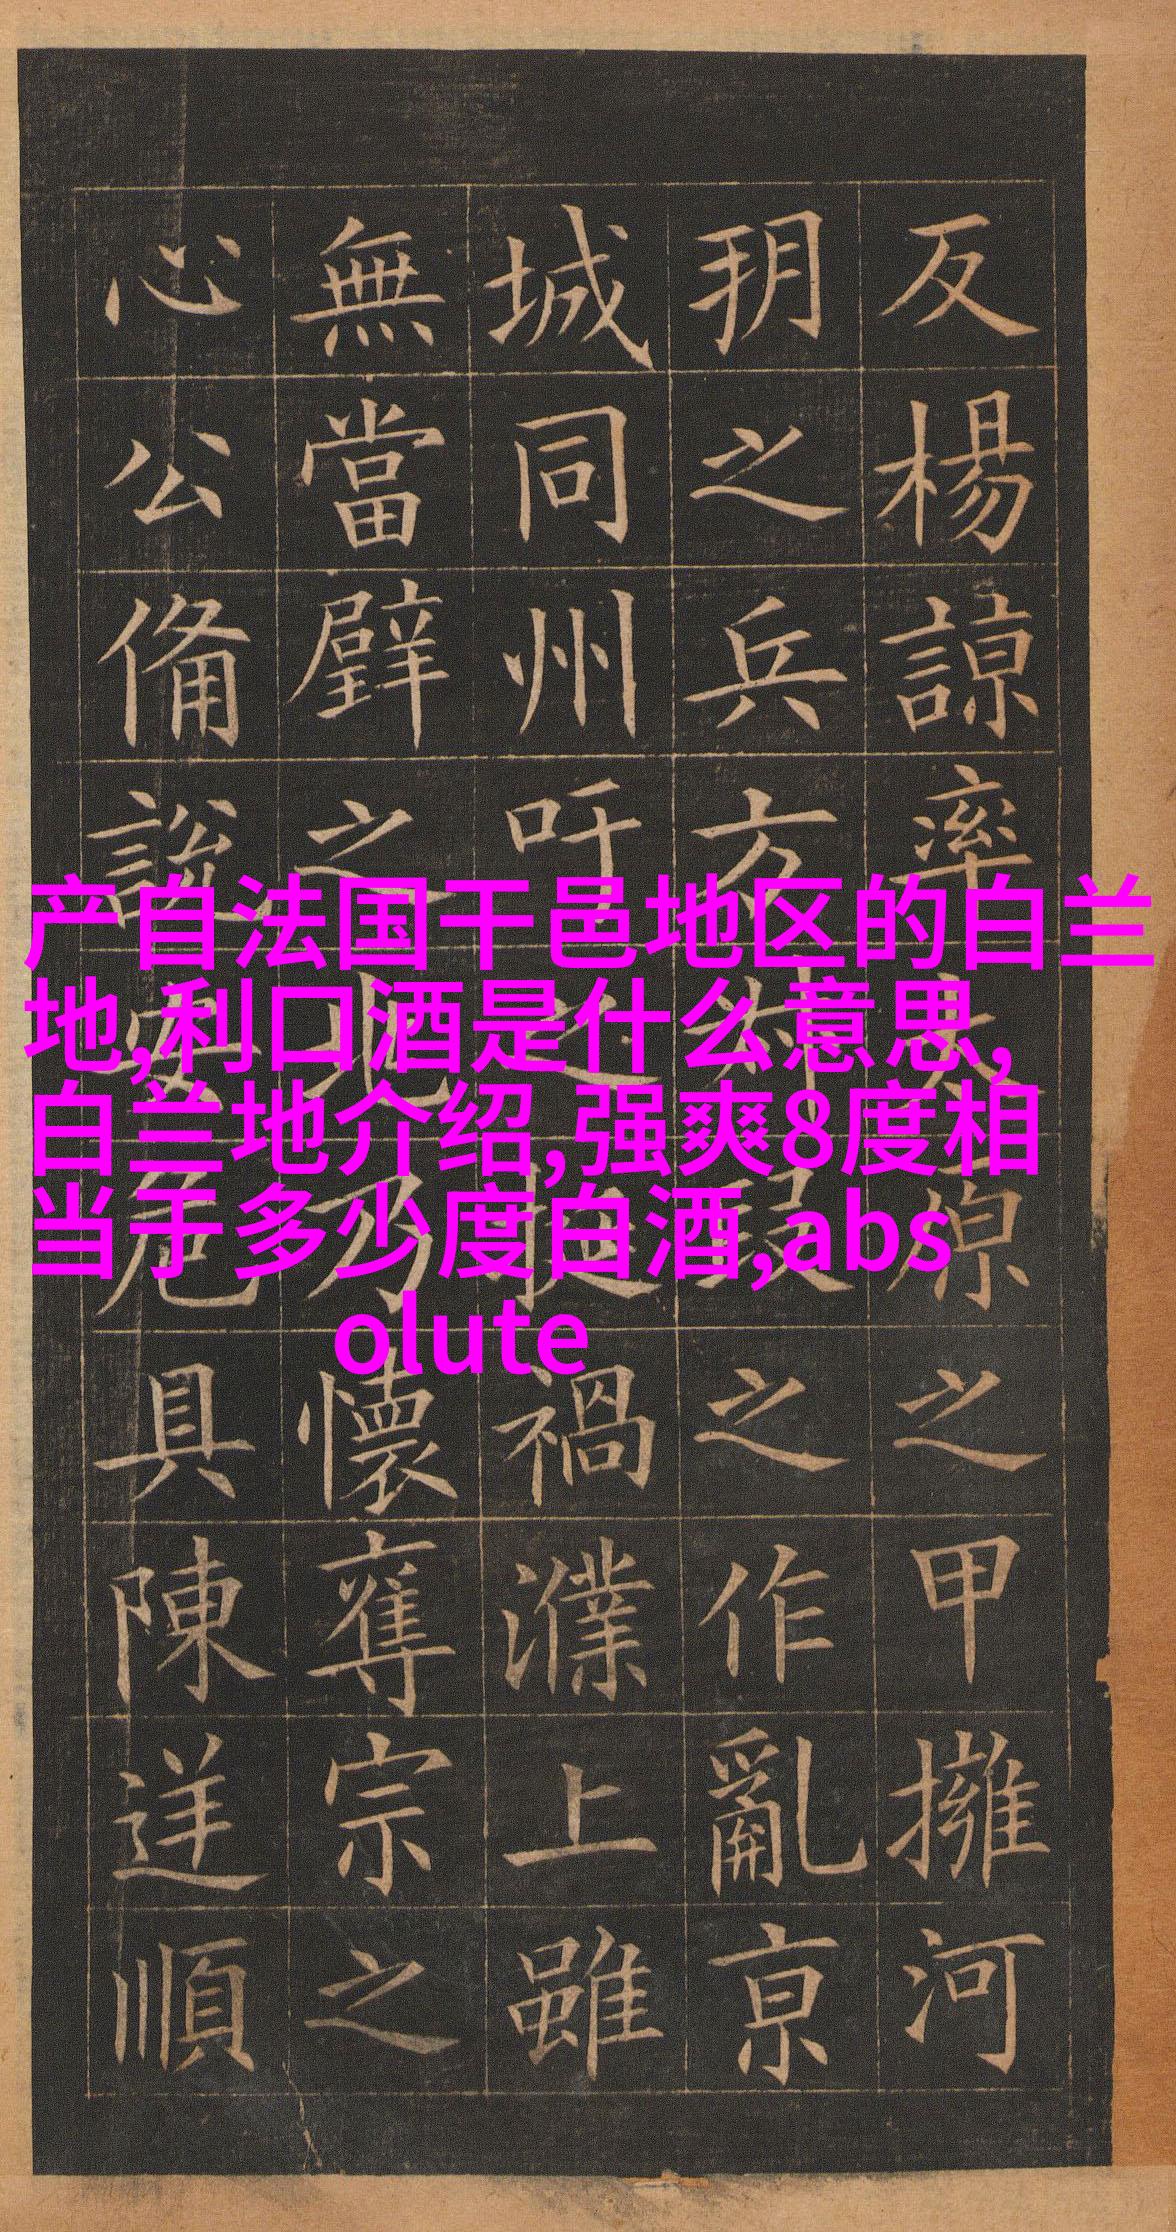 反楊諒率太原之甲擁河
朔之兵方叔段之作亂京
城同州吁之挺禍濮上雖
無當璧之兆乃懷奪宗之
心公備說安危具陳逆順
产自法国干邑地区的白兰
地,利口酒是什么意思,
白兰地介绍,强爽8度相
当于多少度白酒,abs
olute